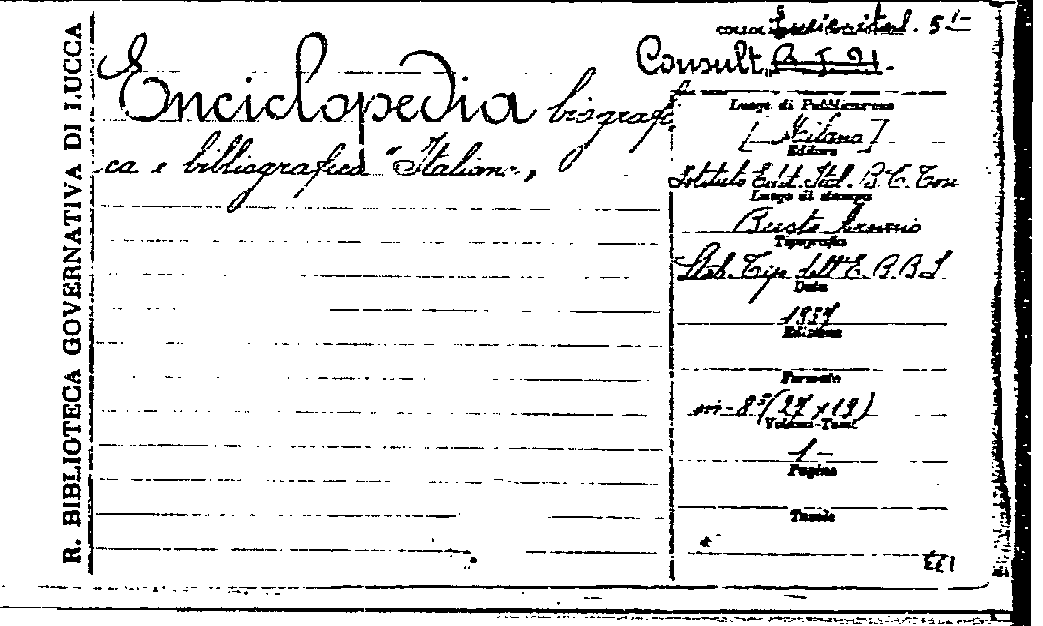 R. BIBLIOTECA GOVERNATIVA DI LUCCA
Consult. B. I. 21.
Enciclopedia biografi
ca e bibliografica "Italiana",
Luogo di Pubblicazione
[Milano]
Editore
Istituto Edit. Ital. B. C. Tosi
Luogo di stampa
Busto Arsizio
Tipografia
Stab. Tip. dell'E. B. B. I.
Data
Edizione
Formato
in-8° (27 x 19)
Volumi-Tomi
1-
Pagine
Tavole